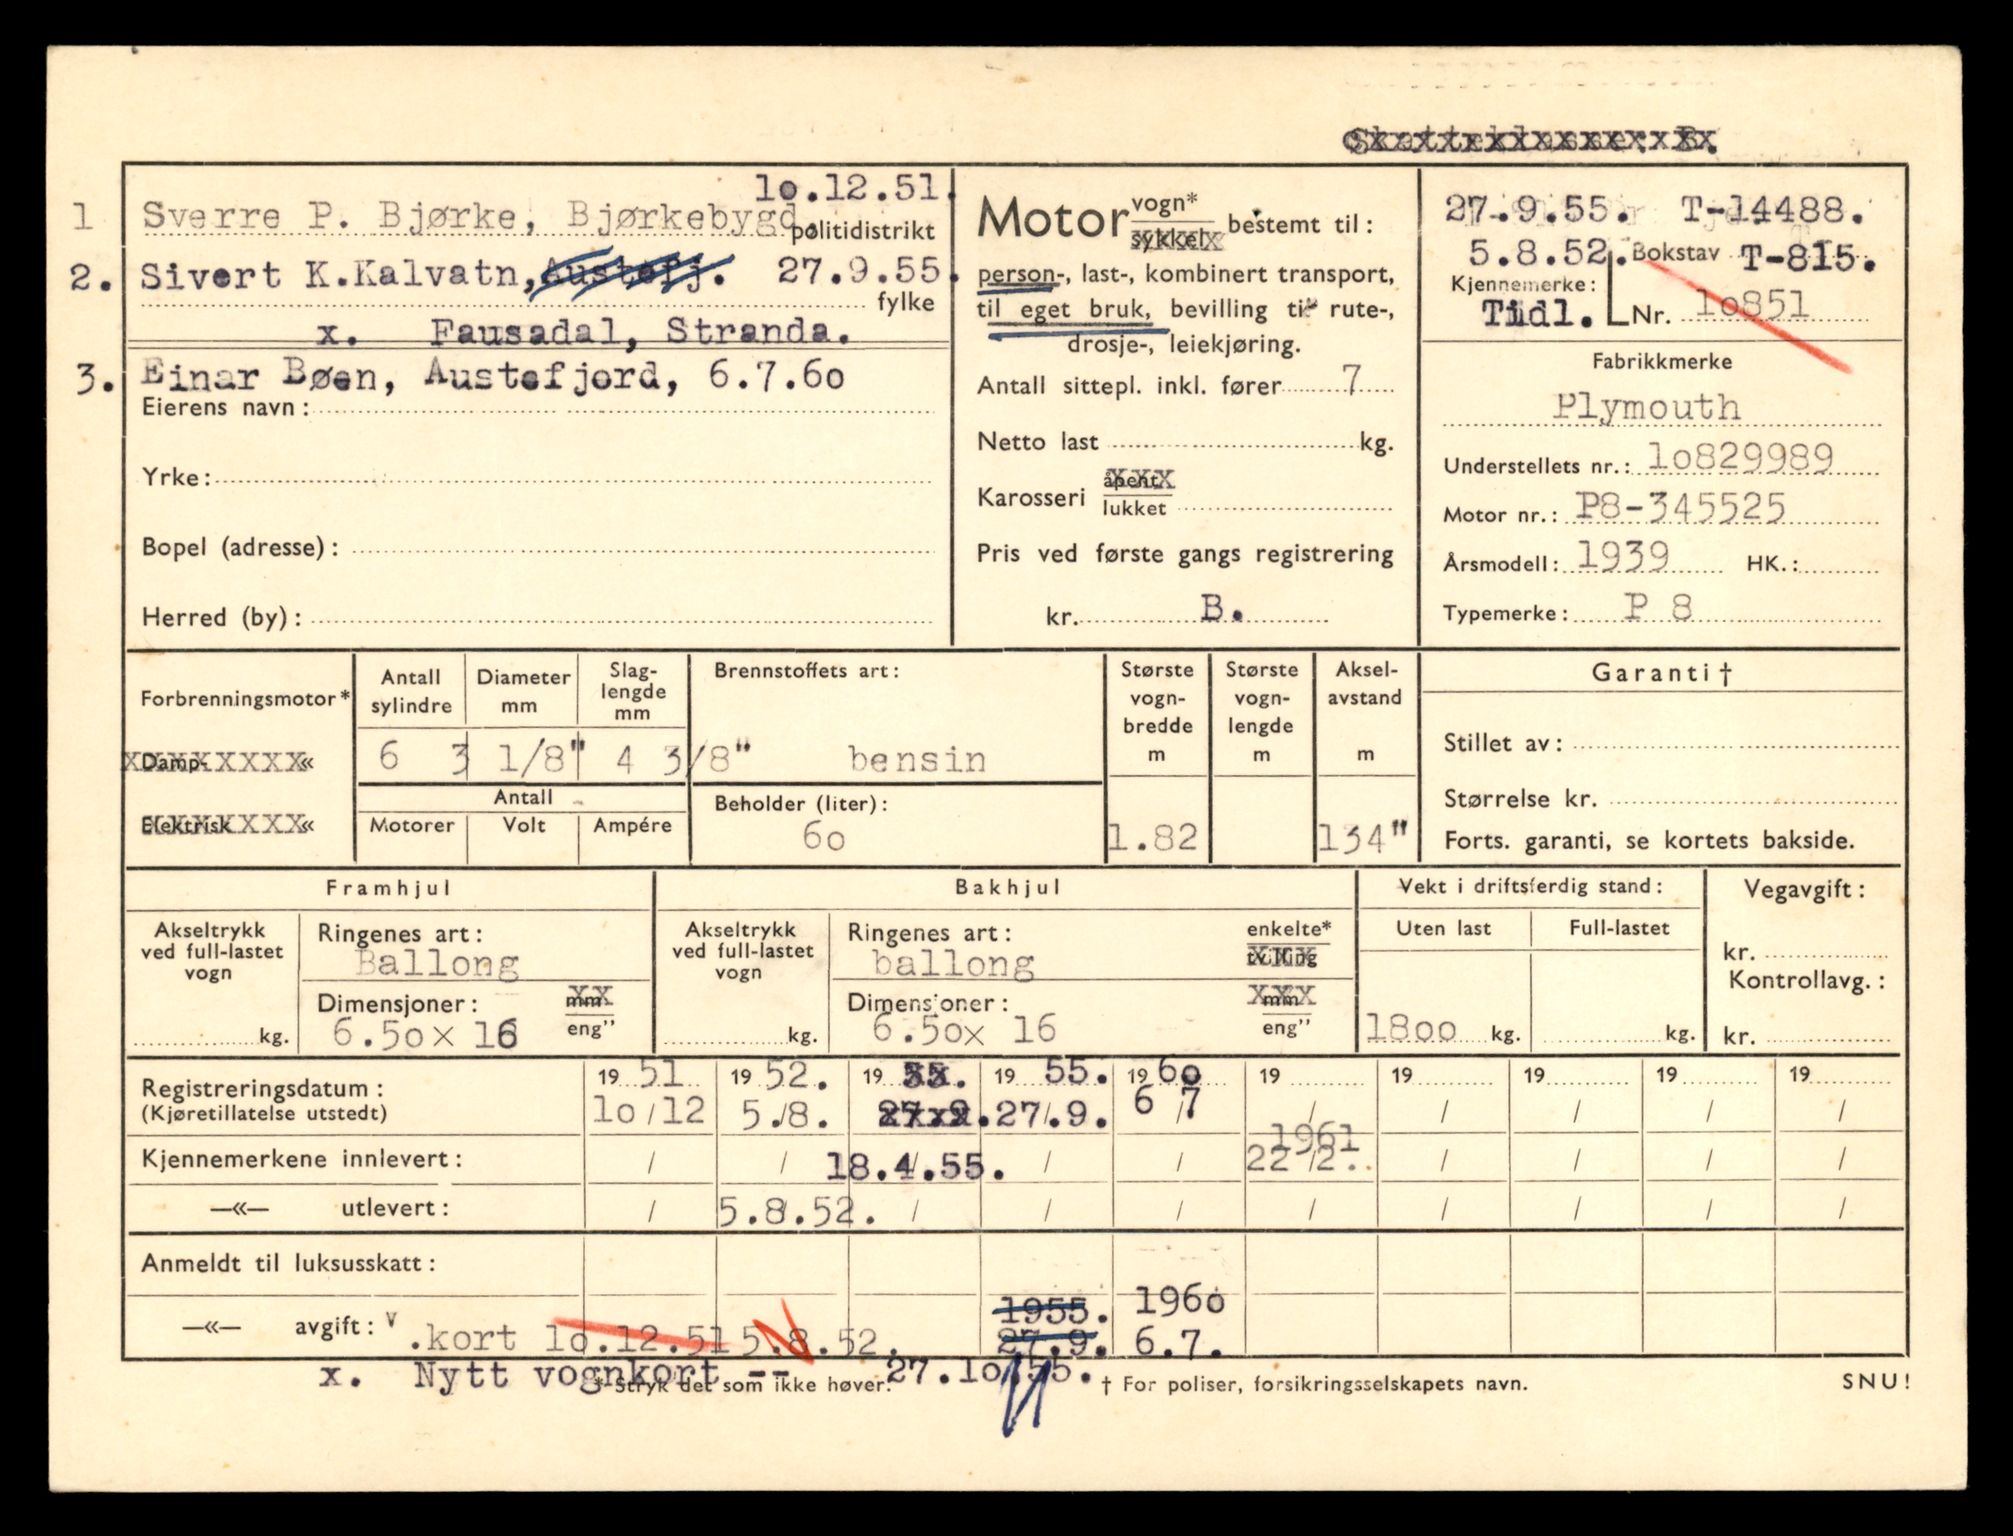 Skatteklasse: B.
1 Sverre P. Bjørke, Bjørkebygd. 10.12.51.
politidistrikt
2. Sivert K.Kalvatn, Austefj. 27.9.55.
fylke
x. Fausadal, Stranda.
3. Einar Bøen, Austefjord, 6.7.60
Eierens navn:
Yrke:
Bopel (adresse):
Herred (by):
Motor vogn* sykkel bestemt til:
person-, last-, kombinert transport,
til eget bruk, bevilling til rute-,
drosje-, leiekjøring.
Antall sittepl. inkl. fører 7
Netto last kg.
Karosseri åpent lukket
Pris ved første gangs registrering
kr. B.
27.9.55. T-14488.
5.8.52. Bokstav T-815.
Kjennemerke:
Tidl. Nr. 10851
Fabrikkmerke
Plymouth
Understellets nr.: 10829989
Motor nr.: P8-345525
Årsmodell: 1939 HK.:
Typemerke: P 8
Forbrenningsmotor*
Damp- «
Elektrisk «
Antall sylindre
Diameter mm
Slag-lengde mm
6 3 1/8" 4 3/8"
Antall
Motorer Volt Ampére
Brennstoffets art:
bensin
Beholder (liter):
60
Største vogn-bredde m
1.82
Største vogn-lengde m
Aksel-avstand m
134"
Garanti †
Stillet av:
Størrelse kr.
Forts. garanti, se kortets bakside.
Framhjul
Akseltrykk ved full-lastet vogn
kg.
Ringenes art:
Ballong
Dimensjoner: mm eng"
6.50 x 16
Bakhjul
Akseltrykk ved full-lastet vogn
kg.
Ringenes art: enkelte* tvilling
ballong
Dimensjoner: mm eng"
6.50x 16
Vekt i driftsferdig stand:
Uten last Full-lastet
1800 kg. kg.
Vegavgift:
kr.
Kontrollavg.:
kr.
Registreringsdatum: 19 51 19 52. 19 55. 19 55. 19 60 19 19 19 19 19
(Kjøretillatelse utstedt) 10/12 5./8. 27.9. 27./9. 6/7 / / / / /
1961
Kjennemerkene innlevert: / / 18.4.55. / / 22/2. / / / /
—«— utlevert: / 5.8.52. / / / / / / / /
Anmeldt til luksusskatt:
1955. 1960
—«— avgift: v.kort 10.12.51 5.8.52. 27.9. 6.7.
x. Nytt vognkort -- 27.10.55.
* Stryk det som ikke høver. † For poliser, forsikringsselskapets navn. SNU!